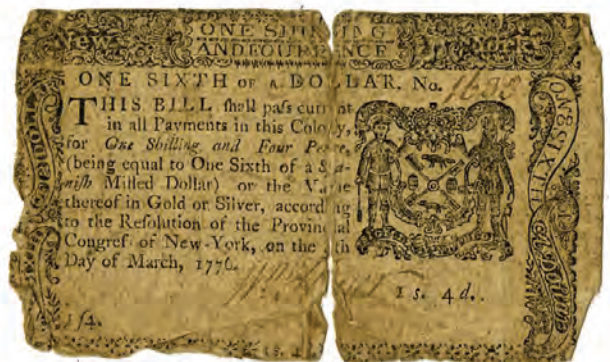 New- ONE SHILLING York
ANDFOURPENCE
ONE SIXTH OF A DOLLAR. No. 1635
THIS BILL ſhall paſs current
in all Payments in this Colony,
for One Shilling and Four Pence,
(being equal to One Sixth of a Spa-
niſh Milled Dollar) or the Value
thereof in Gold or Silver, according
to the Reſolution of the Provincial
Congreſs of New-York, on the 5th
Day of March, 1776.
1 s. 4 d.
1ſ4.
ONE SIXTH
of a Dollar